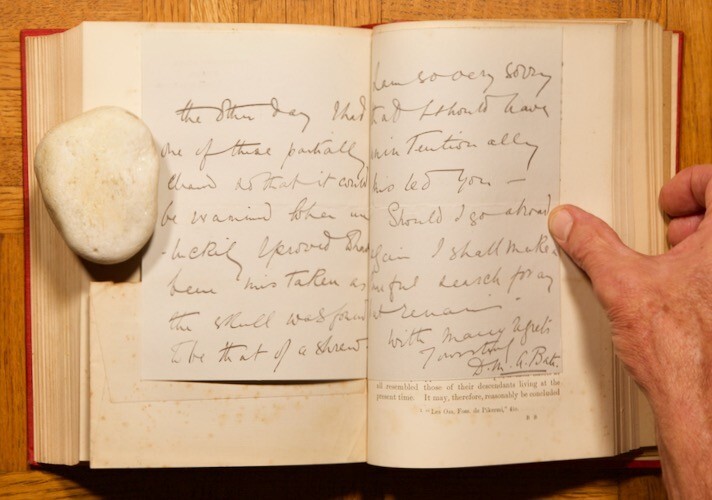 the other day I had
one of these partially
cleaned so that it could
be examined when un
-luckily I proved I had
been mistaken as
the skull was found
to be that of a shrew.
I am so very sorry
that I should have
unintentionally
misled you –
Should I go abroad
again I shall make a
careful search for any
remains
with many regrets
Yours truly
D. M. A. Bate.
all resembled those of their descendants living at the
present time. It may, therefore, reasonably be concluded
"Les Oss. Foss. de Pikermi," &c.
B B